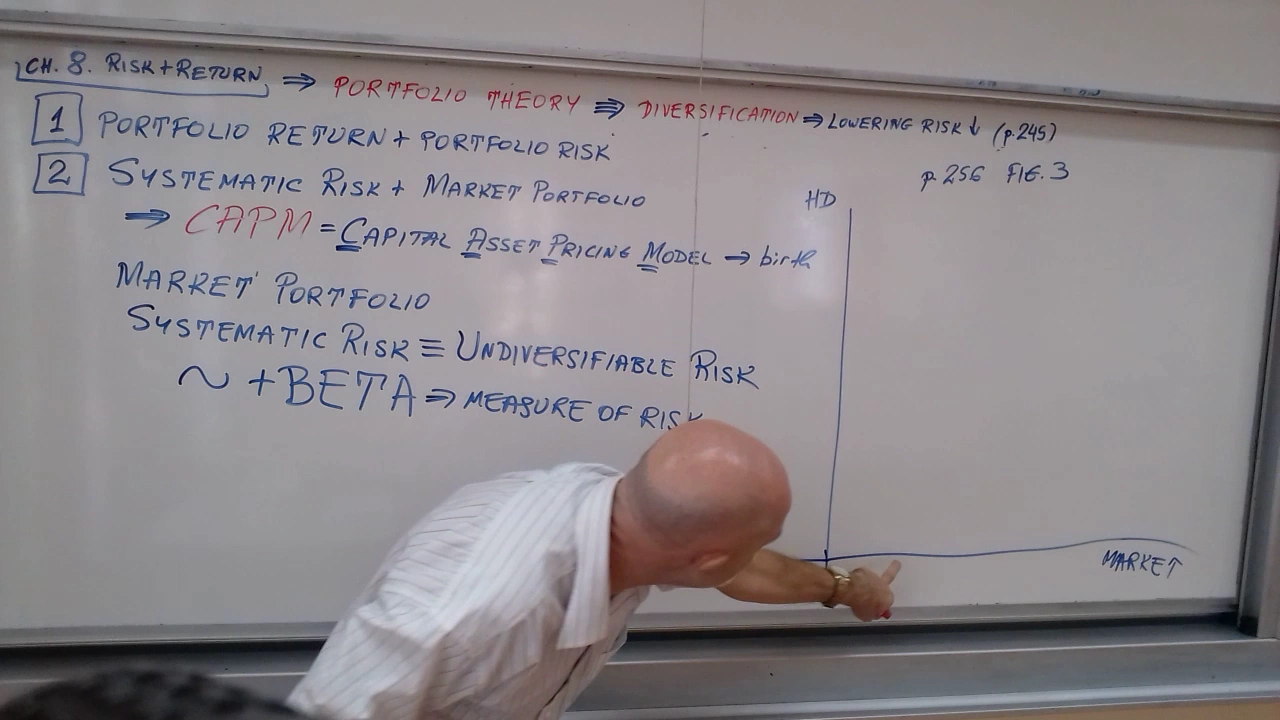 CH. 8. RISK+RETURN ⇒ PORTFOLIO THEORY ⇒ DIVERSIFICATION ⇒ LOWERING RISK ↓ (p.245)
1 PORTFOLIO RETURN + PORTFOLIO RISK
p. 256 FIG. 3
2 SYSTEMATIC RISK + MARKET PORTFOLIO
HD
⇒ CAPM = CAPITAL ASSET PRICING MODEL → birth
MARKET PORTFOLIO
SYSTEMATIC RISK ≡ UNDIVERSIFIABLE RISK
~ + BETA ⇒ MEASURE OF RISK
MARKET